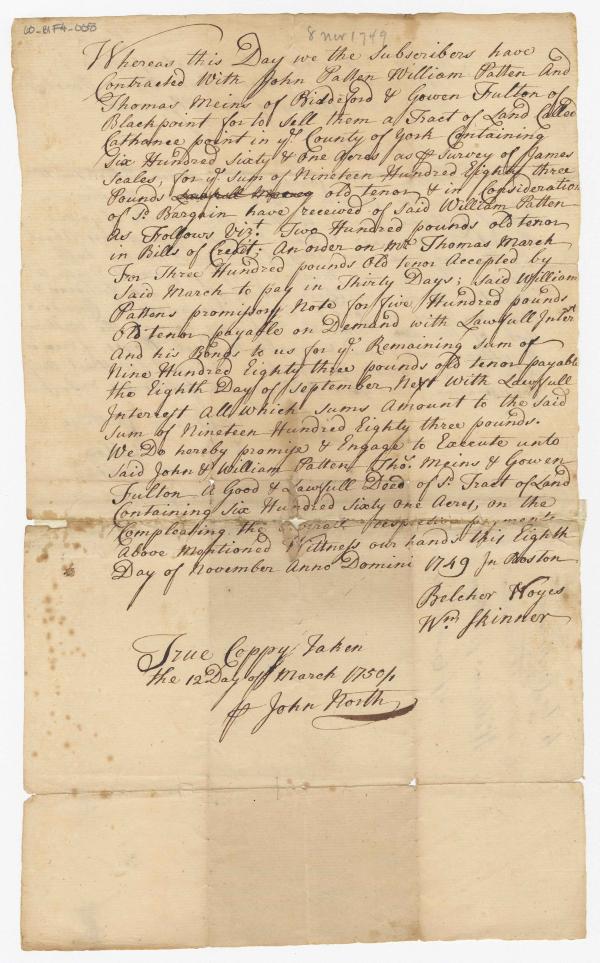 LO-B1F4-008
8 Nov 1749
Whereas this Day we the Subscribers have
Contracted With John Patten William Patten And
Thomas Meins of Biddeford & Gowen Fulton of
Blackpoint for to sell them a Tract of Land Called
Cathance point in yᵉ County of York Containing
Six Hundred Sixty & One Acres as ⅌ Survey of James
Scales, for yᵉ Sum of Nineteen Hundred Eighty three
Pounds old tenor & in Consideration
of sᵈ Bargain have received of said William Patten
As Follows Vizᵗ. Two Hundred pounds old tenor
in Bills of Credit; An order on Mʳ Thomas March
For Three Hundred pounds Old tenor Accepted by
Said March to pay in Thirty Days; Said William
Pattens promissory Note for five Hundred pounds
Old tenor payable on Demand with Lawfull Intʳᵗ
And his Bonds to us for yᵉ Remaining Sum of
Nine Hundred Eighty three pounds old tenor payable
the Eighth Day of September Next With Lawfull
Interest All Which sums Amount to the said
Sum of Nineteen Hundred Eighty three pounds.
We Do hereby promise & Engage to Execute unto
Said John & William Patten Thoˢ. Meins & Gowen
Fulton A Good & Lawfull Deed of sᵈ Tract of Land
Containing Six Hundred Sixty One Acres, on the
Compleating the respective payments
Above Mentioned Wittness our hands this Eighth
Day of November Anno Domini 1749 In Boston
Belcher Noyes
Wᵐ Skinner
True Coppy Taken
the 12 Day of March 1750/1
⅌ John North